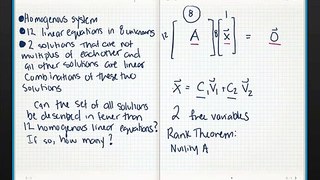 Homogenous system
12 linear equations in 8 unknowns
2 solutions that are not
multiples of each other and
all other solutions are linear
combinations of these two
solutions
Can the set of all solutions
be described in fewer than
12 homogenous linear equations?
If so, how many?
8 1
12 [ A ] 8 [ x⃗ ] = 0⃗
x⃗ = C₁V⃗₁ + C₂ V⃗₂
2 free variables
Rank Theorem:
Nullity A